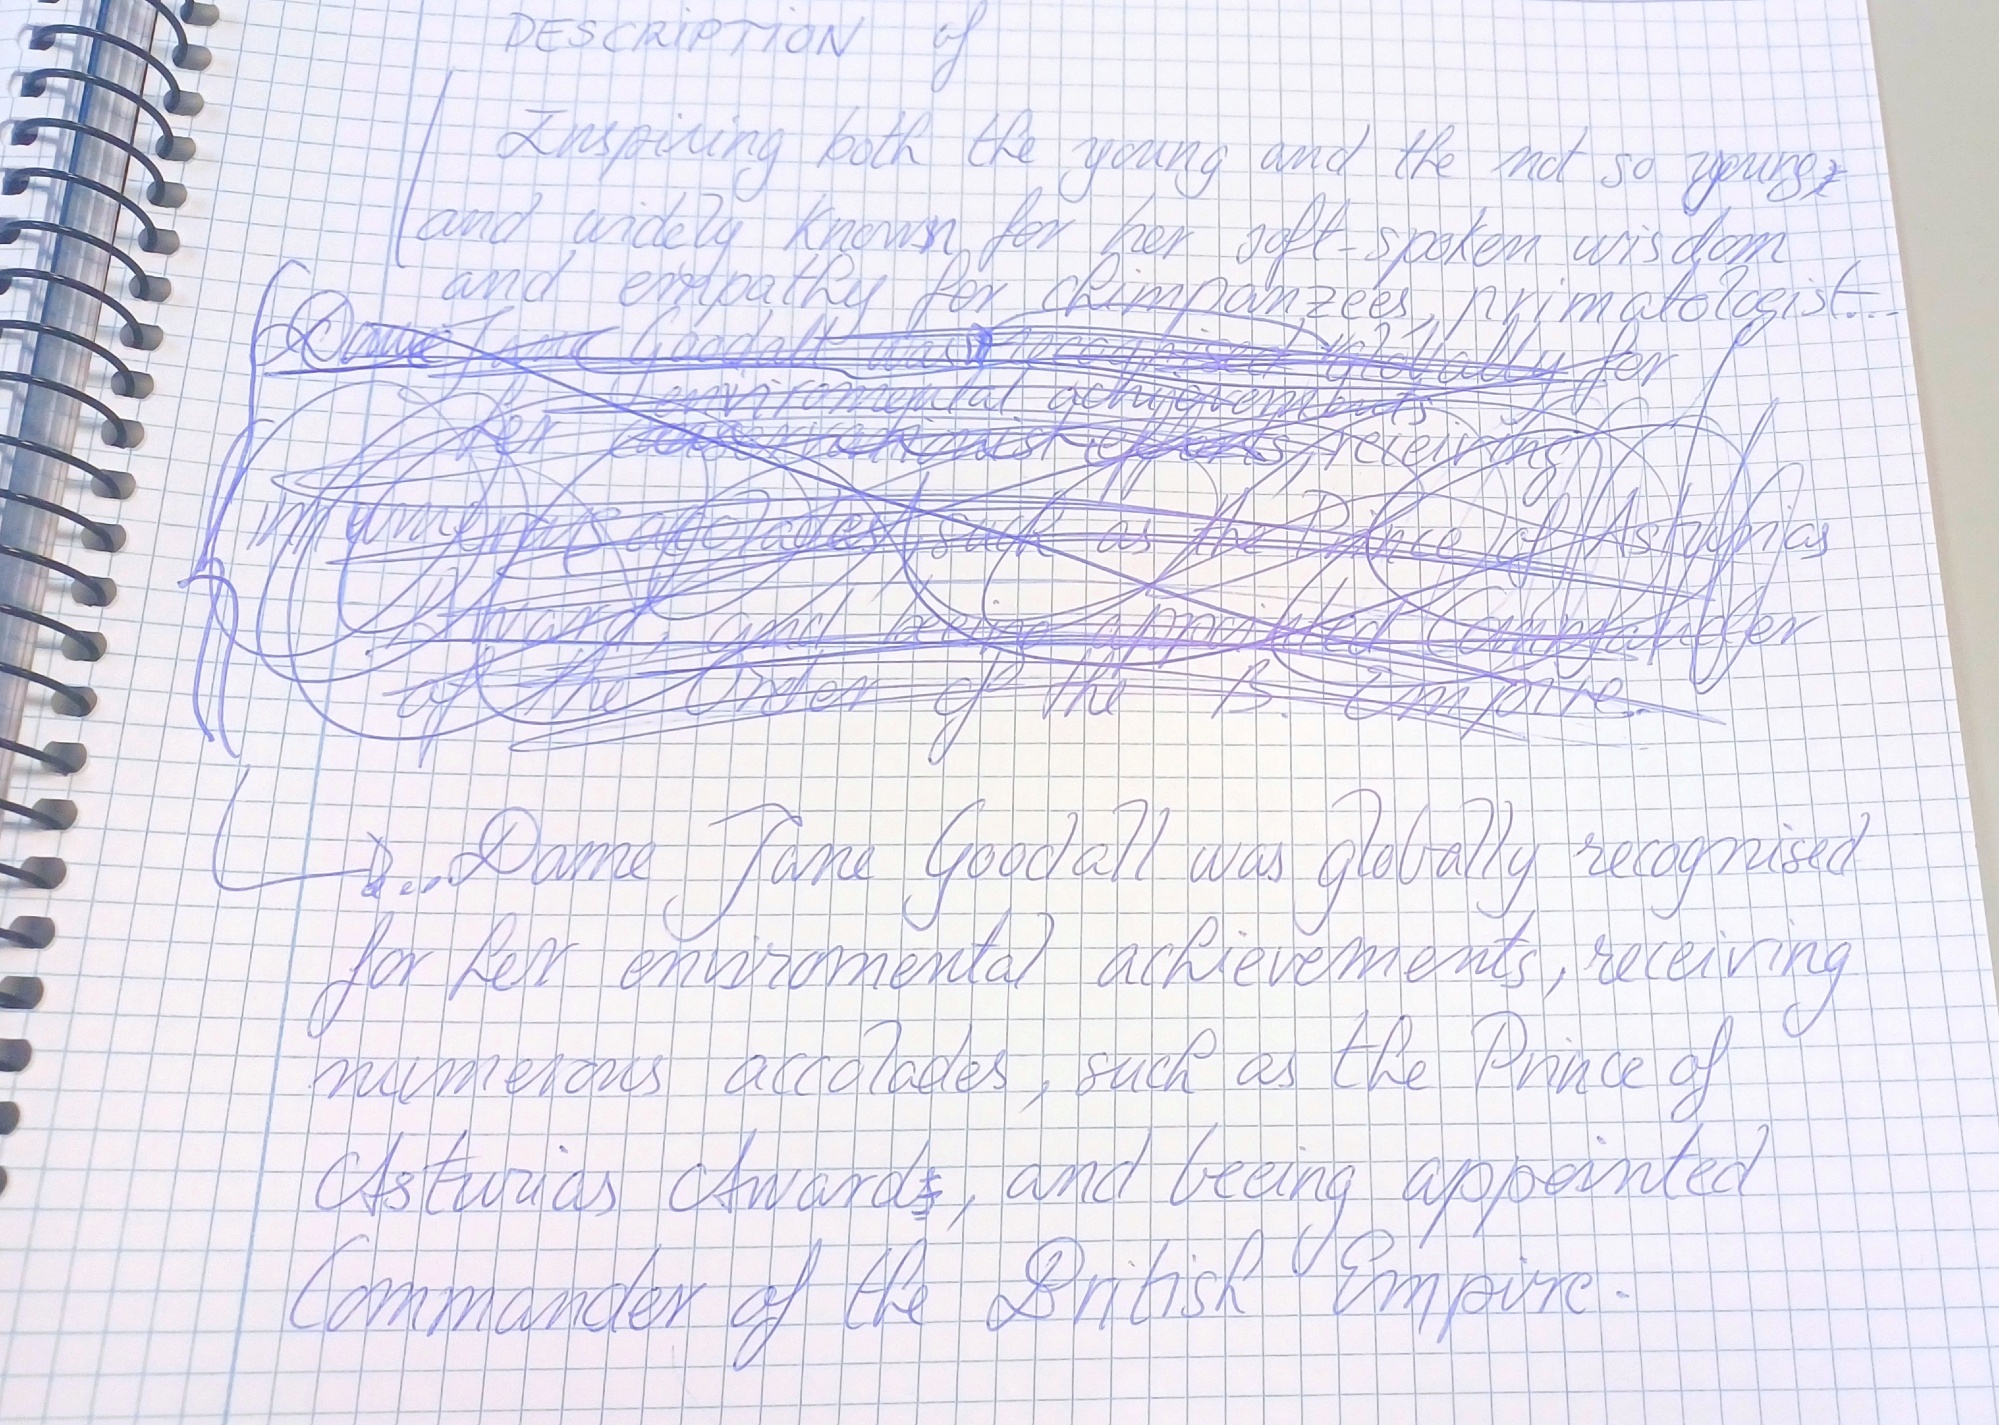 DESCRIPTION of
Inspiring both the young and the not so young,
and widely known for her soft-spoken wisdom
and empathy for chimpanzees, primatologist...
Dame Jane Goodall was recognised globally for
enviromental achievements
her conservationist efforts, receiving
innumerous accolades, such as the Prince of Asturias
Award, and being appointed Commander
of the Order of the B. Empire.
...Dame Jane Goodall was globally recognised
for her enviromental achievements, receiving
numerous accolades, such as the Prince of
Asturias Awards, and beeing appointed
Commander of the British Empire.